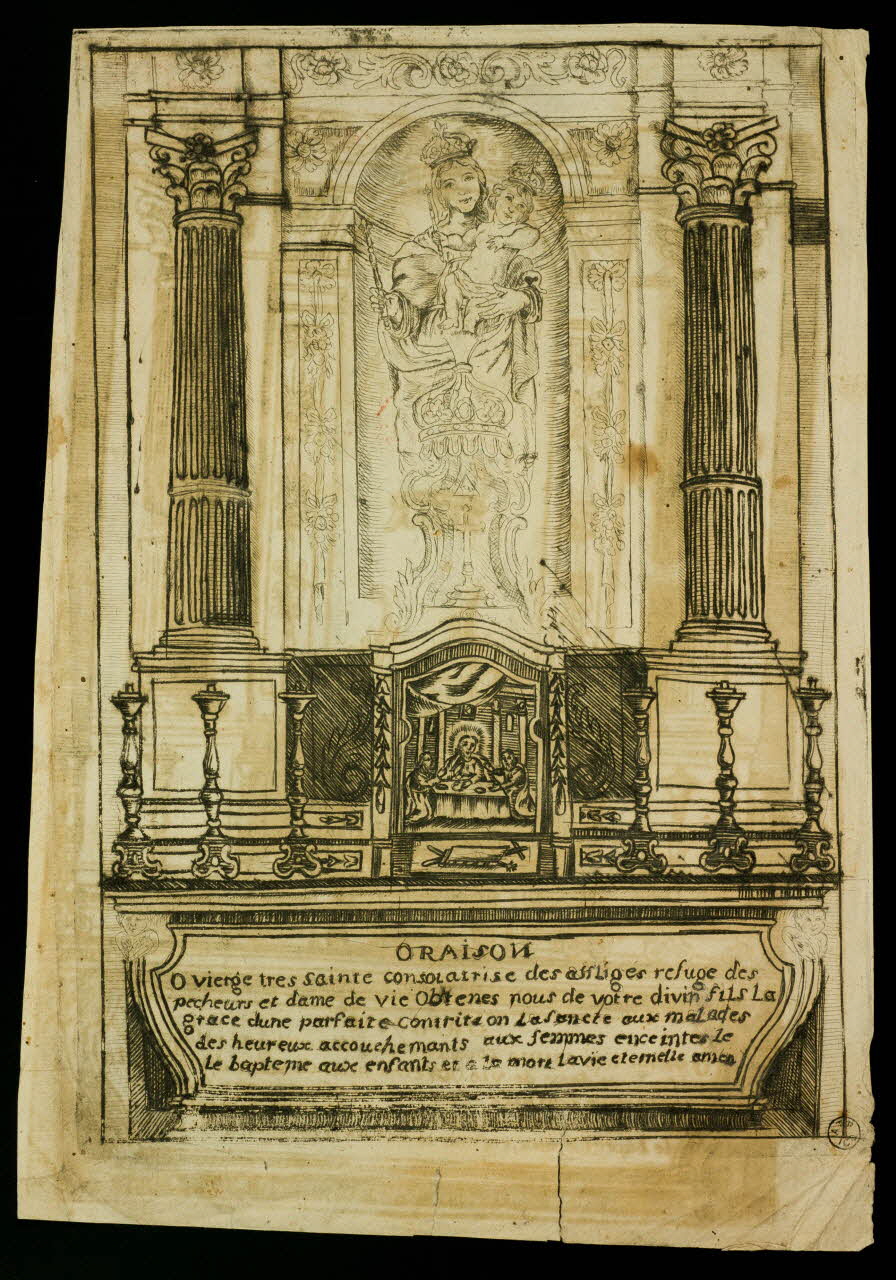 ORAISON
O vierge tres sainte consolatrise des affliges refuge des
pecheurs et dame de vie Obtenes nous de votre divin fils La
grace dune parfaite contrition La sancte aux malades
des heureux accouchemants aux femmes enceintes le
Le bapteme aux enfants et a la mort La vie eternelle amen